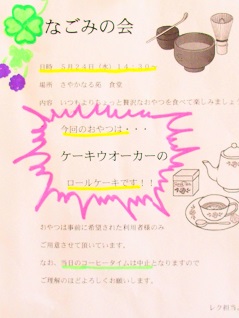 なごみの会
日時 5月24日（水）14：30～
場所 さやかなる苑 食堂
内容 いつもよりちょっと贅沢なおやつを食べて楽しみましょ
今回のおやつは・・・
ケーキウオーカーの
ロールケーキです！！
おやつは事前に希望された利用者様のみ
ご用意させて頂いています。
なお、当日のコーヒータイムは中止となりますので
ご理解のほどよろしくお願いします。
レク担当